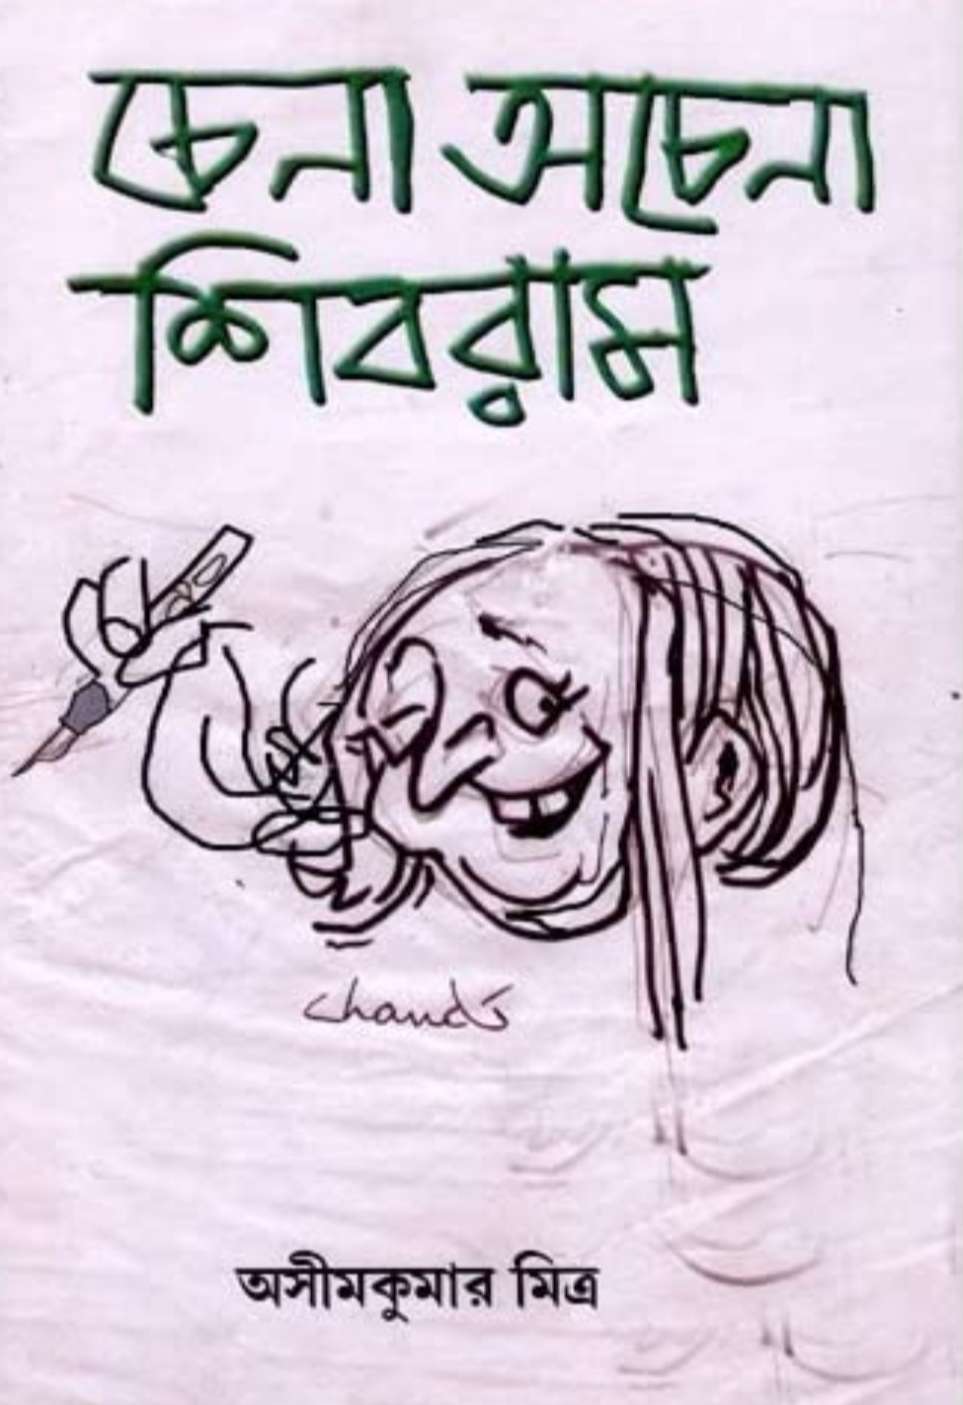 চেনা অচেনা
শিবরাম
অসীমকুমার মিত্র